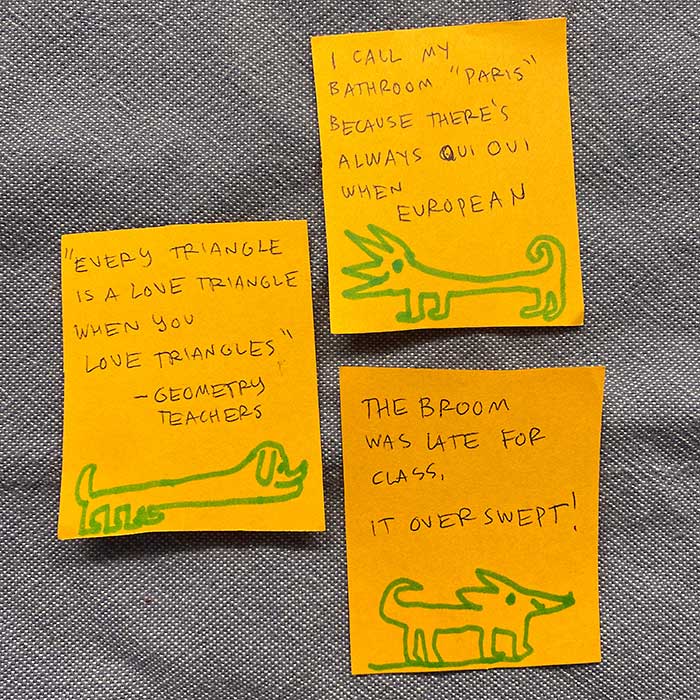 I CALL MY
BATHROOM "PARIS"
BECAUSE THERE'S
ALWAYS OUI OUI
WHEN
EUROPEAN
"EVERY TRIANGLE
IS A LOVE TRIANGLE
WHEN YOU
LOVE TRIANGLES"
- GEOMETRY
TEACHERS
THE BROOM
WAS LATE FOR
CLASS,
IT OVER SWEPT!